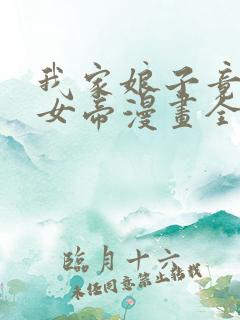 我家娘子竟
女帝漫畫全
臨月十六
未经同意禁止转载